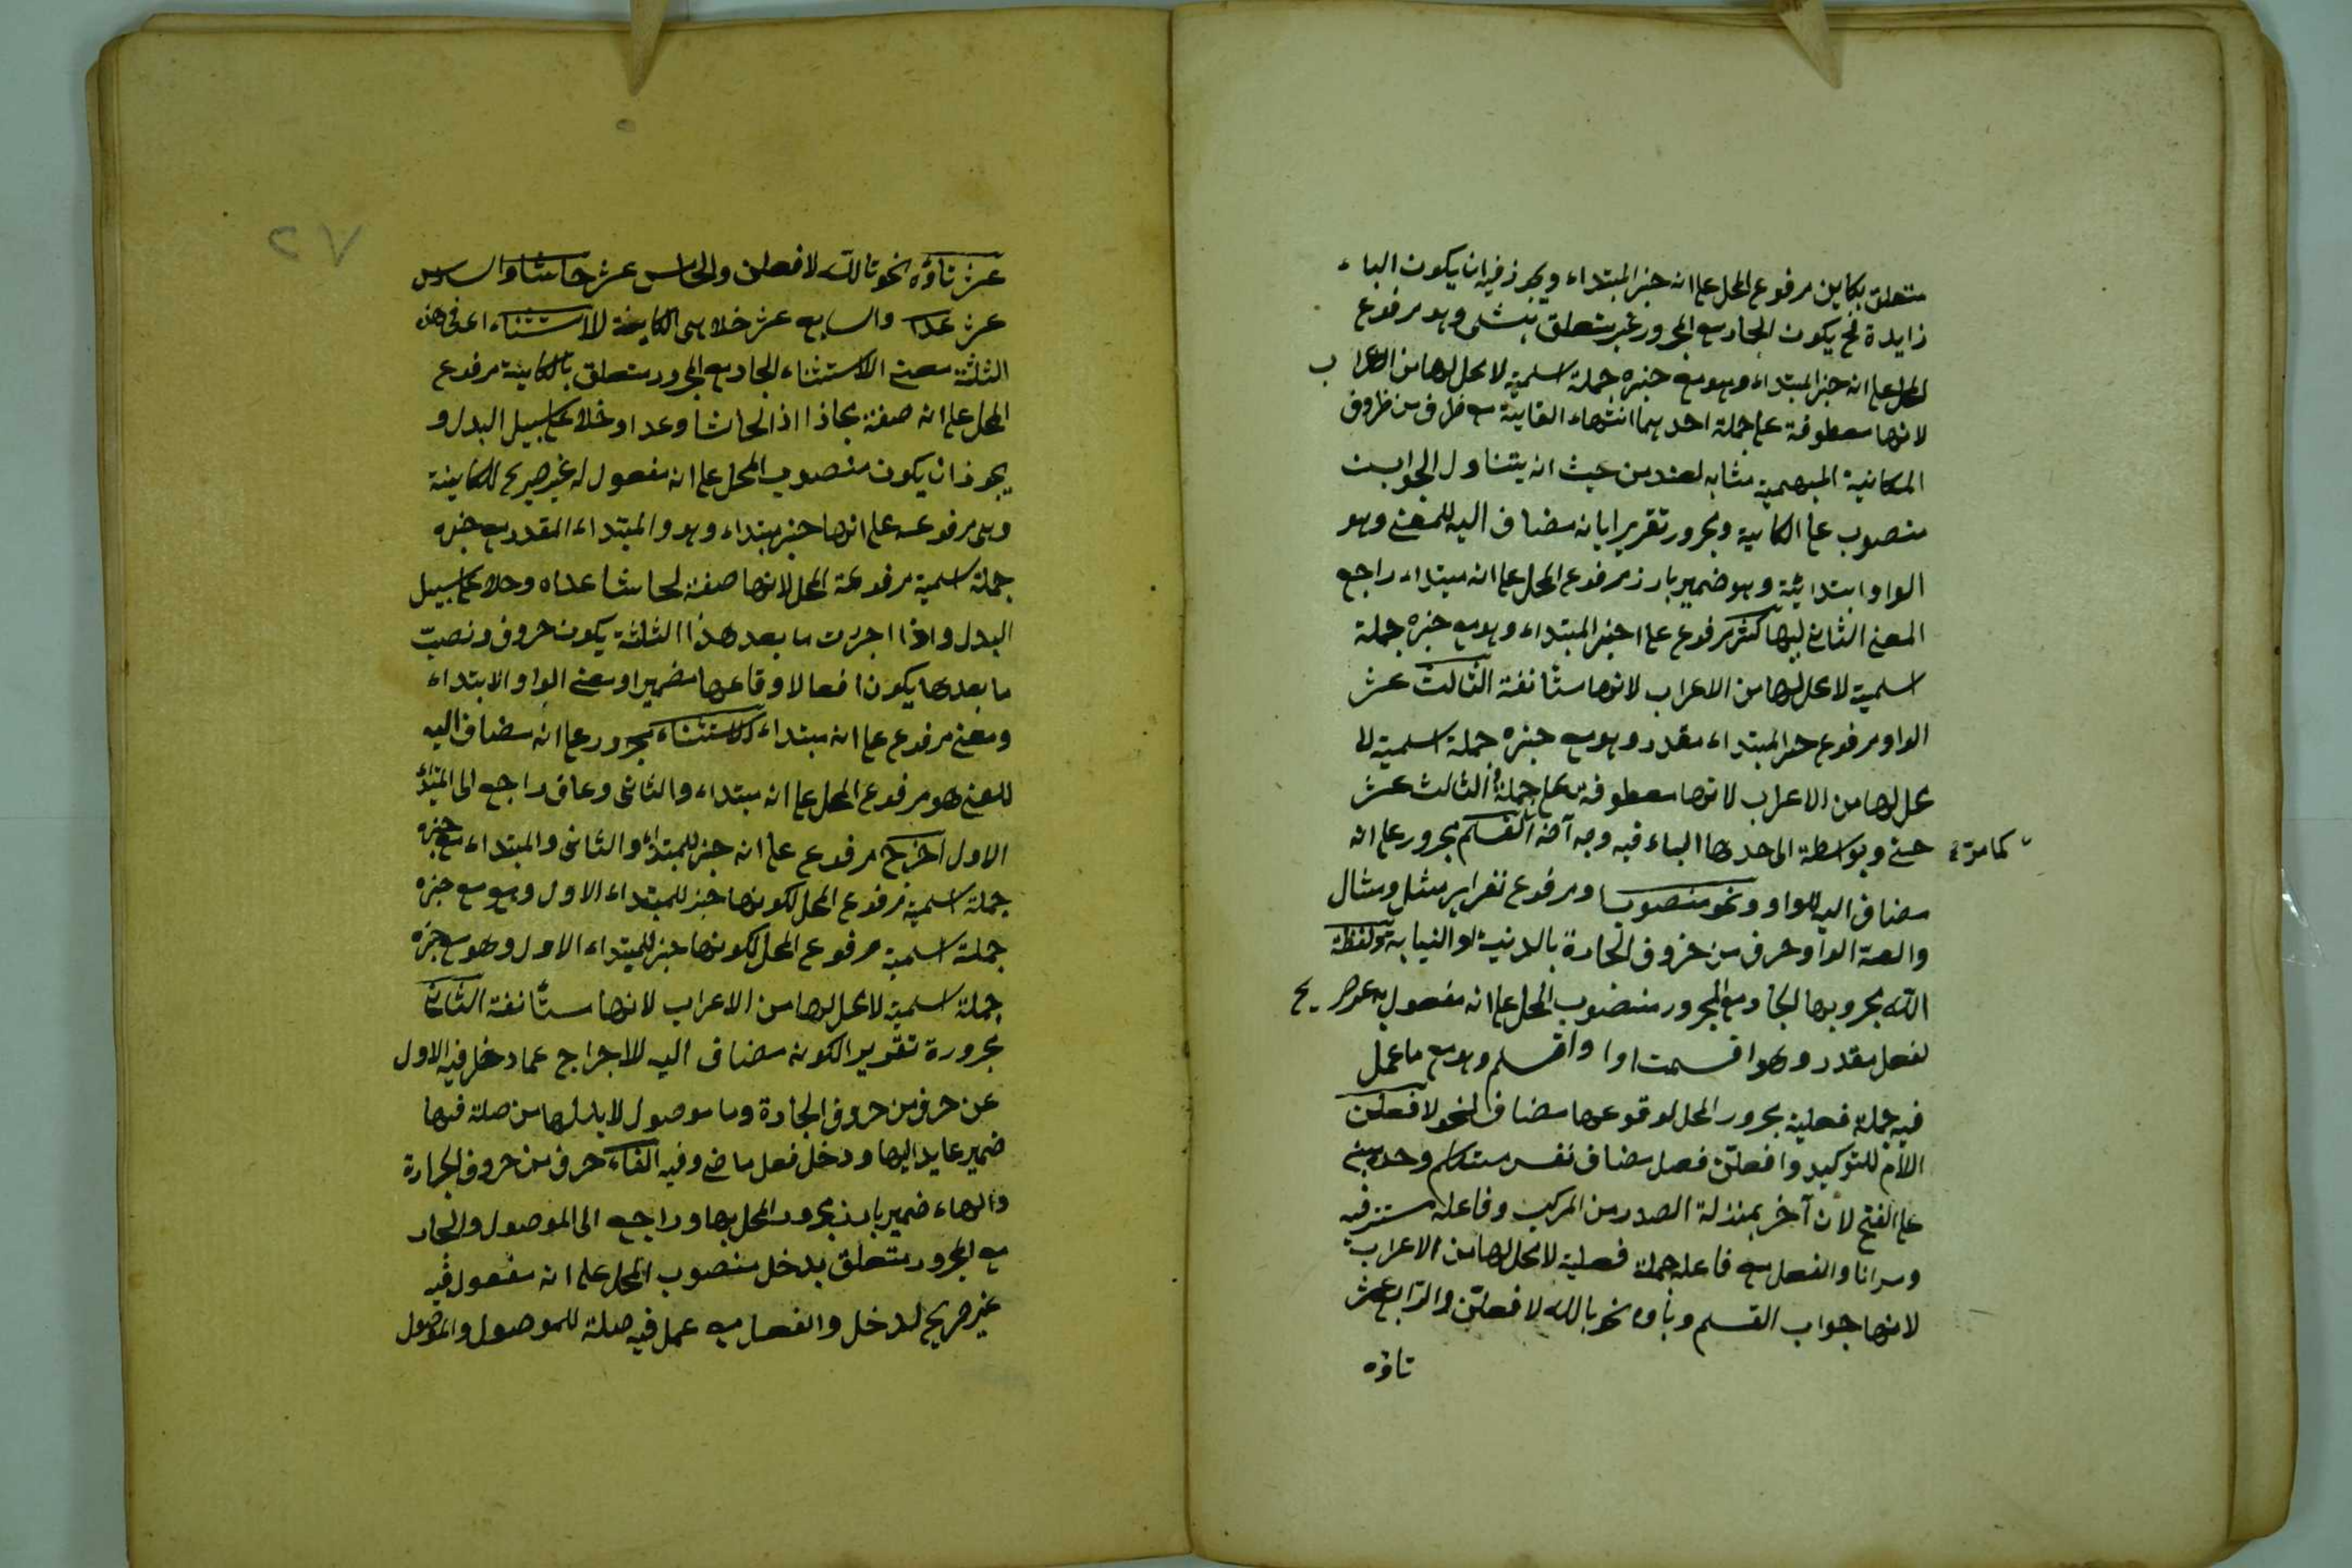 متعلق بكاين مرفوع المحل على انه خبر المبتداء ويجوز فيه ان يكون الباء
زايدة فح يكون الجار مع المجرور غير متعلق بشئ وهو مرفوع
المحل على انه خبر المبتداء وهو مع خبره جملة اسمية لا محل لها من الاعراب
لانها معطوفة على جملة احديهما انتهاء الغاية مع ظرف من ظروف
المكانية المبهمية مشابه لعند من حيث انه يتناول الجوانب
منصوب على الكاينة ومجرور تقريرا بانه مضاف اليه للمعنى وهو
الواو ابتدائية وهو ضمير بارز مرفوع المحل على انه مبتداء راجع
المعنى الثانى ليها كثر مرفوع على اخبر المبتداء وهو مع خبره جملة
اسمية لا محل لها من الاعراب لانها مستأنفة الثالث عشر
الواو مرفوع خبر المبتداء مقدر وهو مع خبره جملة اسمية لا
محل لها من الاعراب لانها معطوفة على جملة الثالث عشر
حتى وبواسطة الى احدها الباء فيه وجه آخر القسم مجرور على انه
كما مر
مضاف اليه للواو ونحو منصوب او مرفوع تقرير مثل ومثال
والعة الواو حرف من حروف الجارة بالدنية او النيابة ولفظة
الله مجرور بها الجار مع المجرور منصوب المحل على انه مفعول به غير صريح
لفعل مقدر وهو اقسمت او اقسم وهو مع ما عمل
فيه جملة فعلية مجرور المحل لوقوعها مضاف لنحو لافعلن
اللام للتوكيد وافعلن فعل مضاف نفس متكلم وحده مبنى
على الفتح لان آخر بمنزلة الصدر من المركب وفاعله مستتر فيه
وهو انا والفعل مع فاعله جملة فعلية لا محل لها من الاعراب
لانها جواب القسم وباؤه نحو بالله لافعلن والرابع عشر
تاؤه
٢٧
عشر تاؤه نحو تالله لافعلن والخامس عشر حاشا والسادس
عشر عدا والسابع عشر خلا هى الكاينة للاستثناء اعنى فى هذه
الثلثة معنى الاستثناء الجار مع المجرور متعلق بالكاينة مرفوع
المحل على انه صفة مجازا اذ الحاشا وعدا وخلا على سبيل البدل و
يجوز ان يكون منصوب المحل على انه مفعول له غير صريح للكاينة
وهى مرفوعة على انها خبر مبتداء وهو والمبتداء المقدر مع خبره
جملة اسمية مرفوعة المحل لانها صفة لحاشا عداه وخلا على سبيل
البدل واذا اجررت ما بعد هذا الثلثة يكون حروف ونصبت
ما بعدها يكون افعالا وفاعلها مضميرا ومعنى الواو الابتداء
ومعنى مرفوع على انه مبتداء كالاستثناء مجرور على انه مضاف اليه
للمعنى هو مرفوع المحل على انه مبتداء والثانى وعاق راجع الى المبتدأ
الاول اخرج مرفوع على انه خبر للمبتداء والثانى والمبتداء مع خبره
جملة اسمية مرفوع المحل لكونها خبر للمبتداء الاول وهو مع خبره
جملة اسمية مرفوع المحل لكونها خبر للمبتداء الاول وهو مع خبره
جملة اسمية لا محل لها من الاعراب لانها مستأنفة الثانى
مجرورة تقويرا لكونه مضاف اليه للاجراج عما دخل فيه الاول
عن حرف من حروف الجارة وما موصول لابد لها من صلة فيها
ضمير عايد اليها ودخل فعل ماضى وفيه الفاء حرف من حروف الجرارة
والهاء ضمير بارز مجرور المحل بها وراجع الى الموصول والجار
مع المجرور متعلق بدخل منصوب المحل على انه مفعول فيه
غير صريح لدخل والفعل مع عمل فيه صلة للموصول والموصول